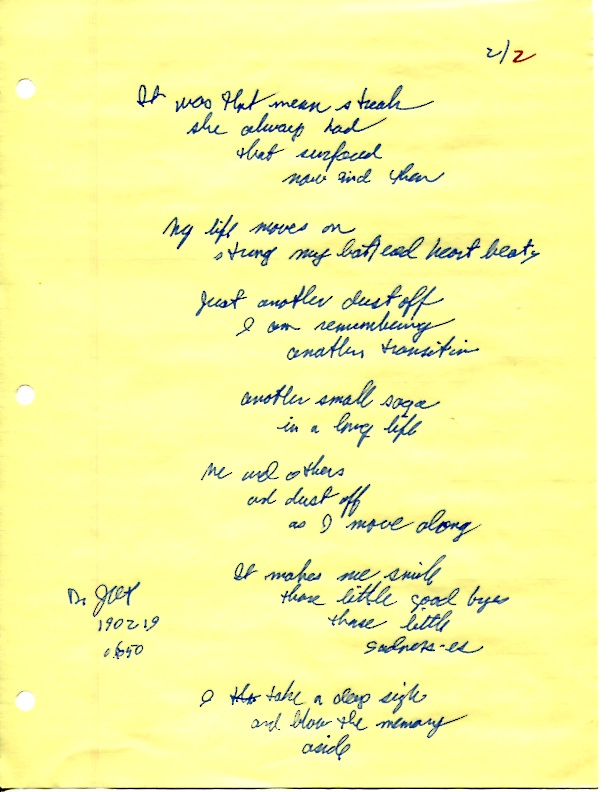 2/2
It was that mean streak
she always had
that surfaced
now and then
My life moves on
strong my heart beats
Just another dust off
I am remembering
another transition
another small saga
in a long life
me and others
and dust off
as I move along
It makes me smile
those little good byes
those little
sadness-es
Dr JOP
190219
0650
I take a deep sigh
and blow the memory
aside